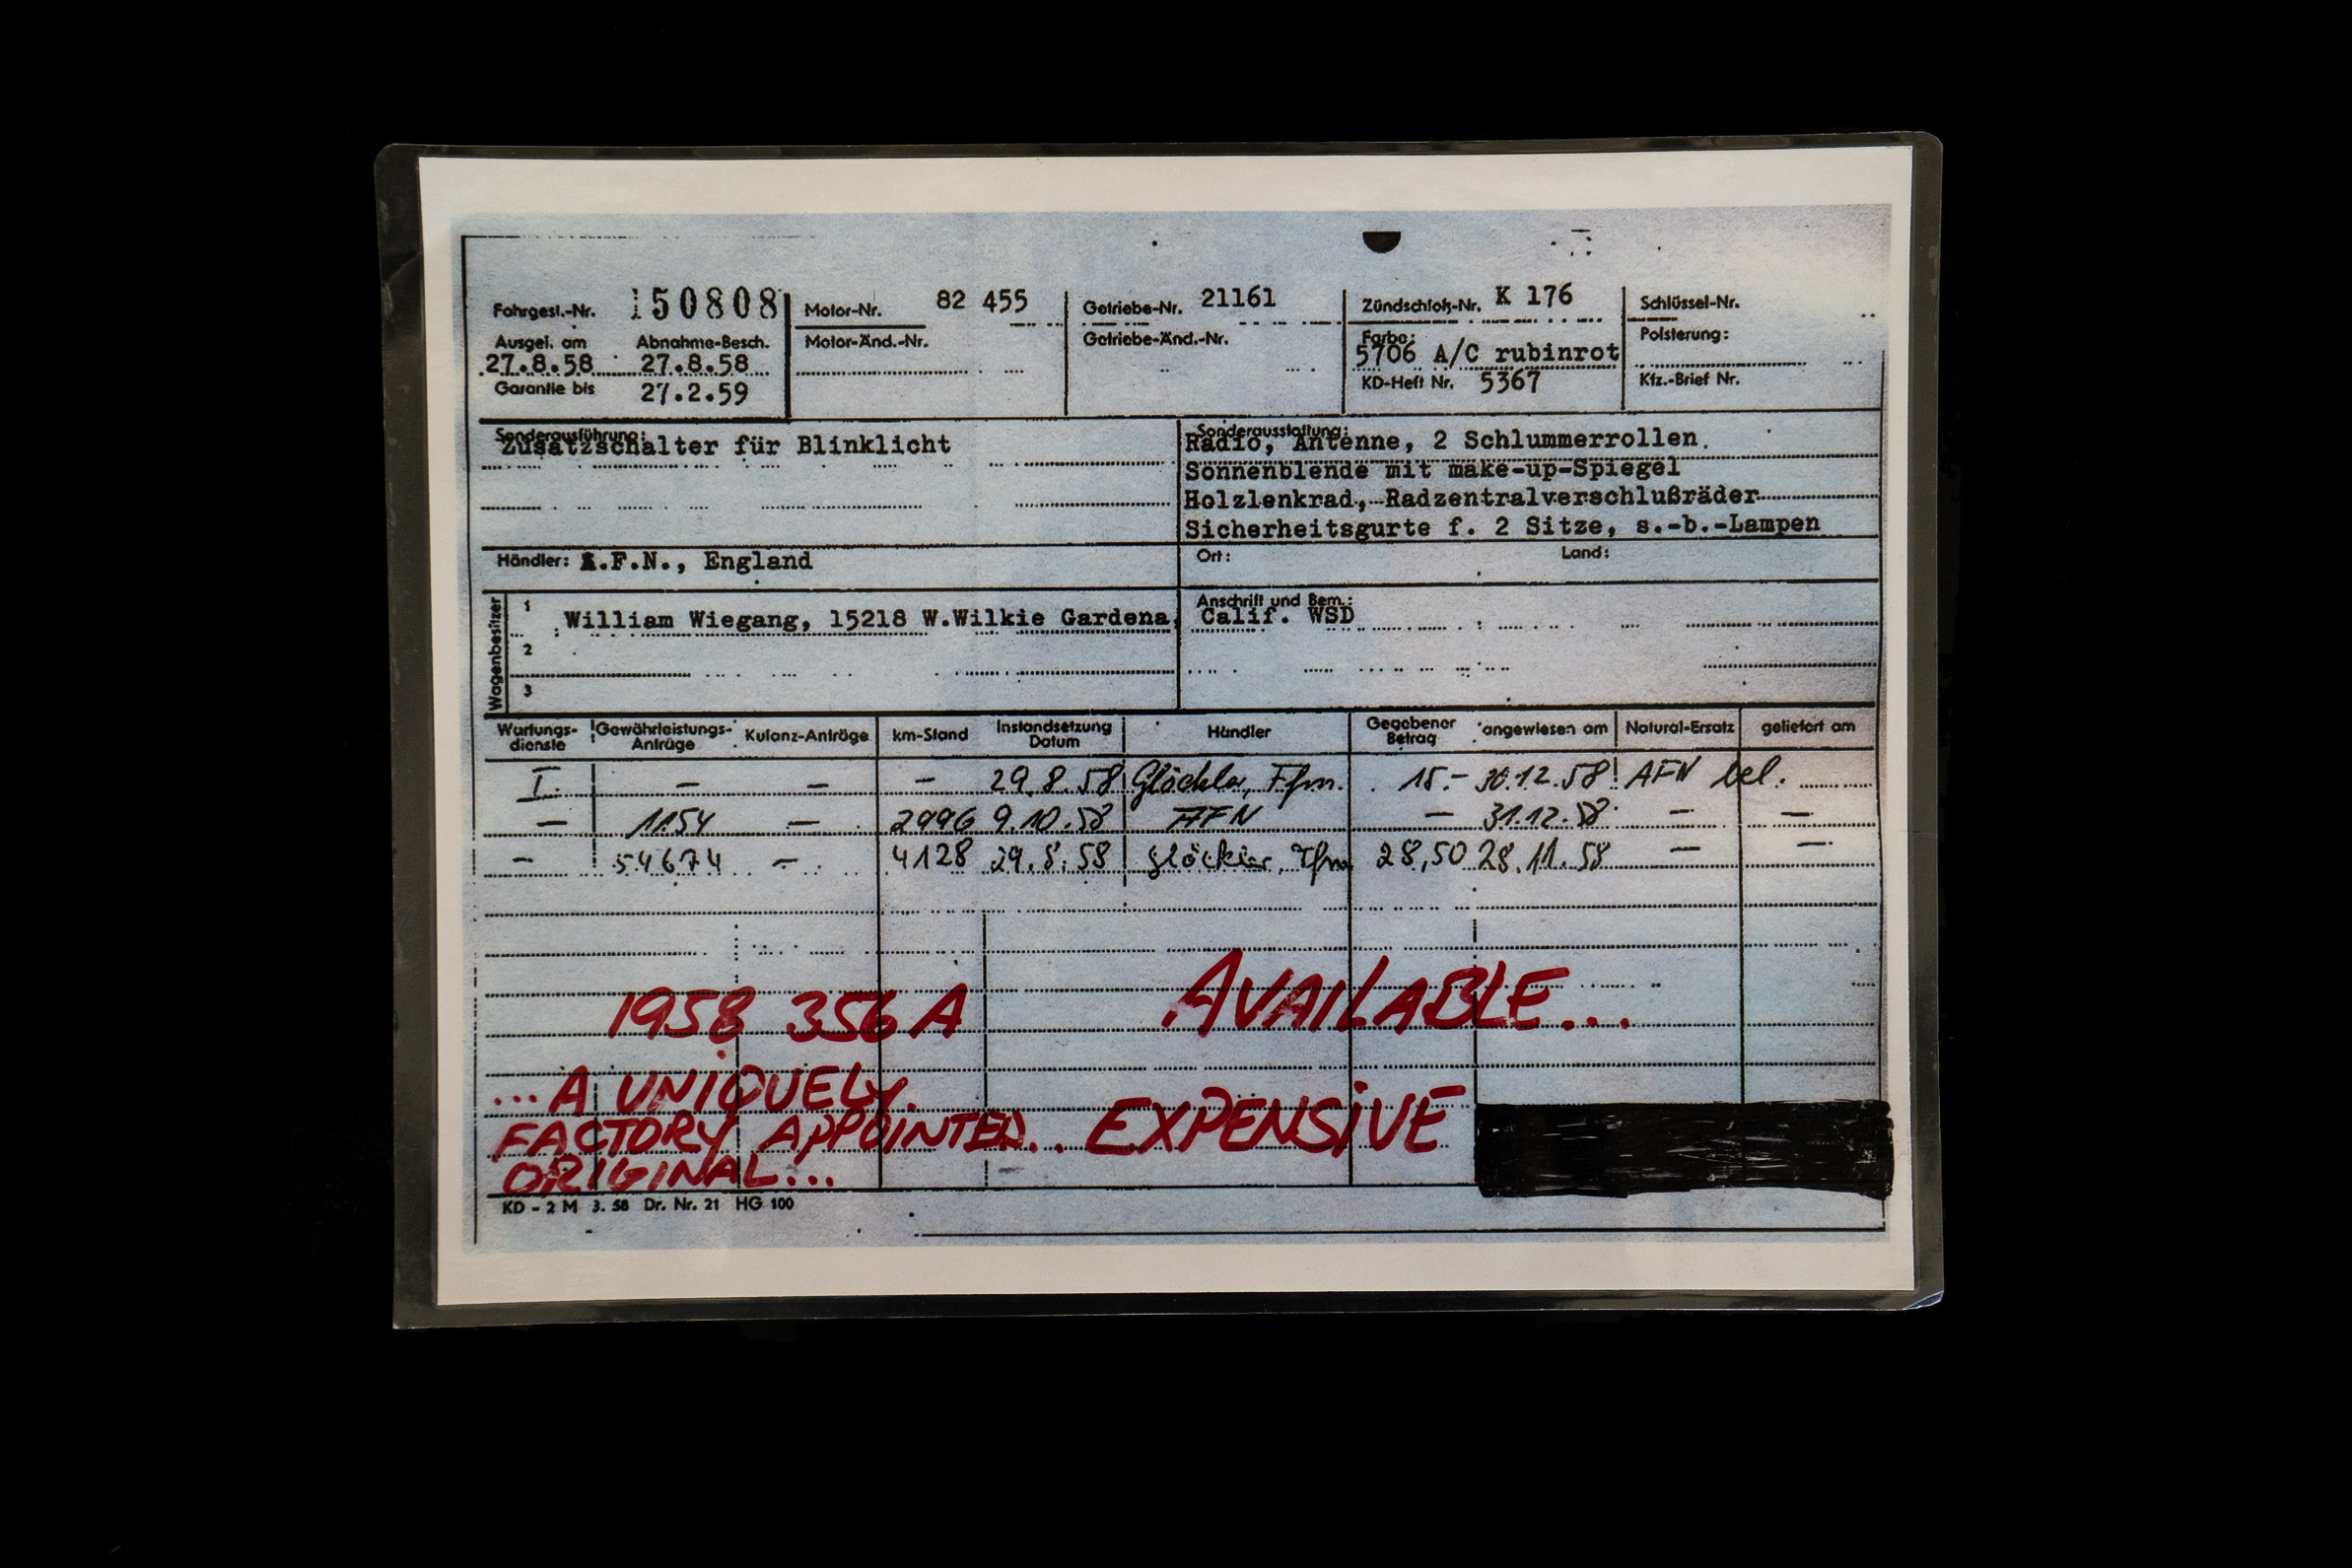 Fahrgest.-Nr. 150808 Motor-Nr. 82 455 Getriebe-Nr. 21161 Zündschloß-Nr. K 176 Schlüssel-Nr.
Ausgel. am Abnahme-Besch. Motor-Änd.-Nr. Getriebe-Änd.-Nr. Farbe: 5706 A/C rubinrot Polsterung:
27.8.58 27.8.58
Garantie bis 27.2.59 KD-Heft Nr. 5367 Kfz.-Brief Nr.
Sonderausführung: Sonderausstattung:
Zusatzschalter für Blinklicht Radio, Antenne, 2 Schlummerrollen.
Sonnenblende mit make-up-Spiegel
Holzlenkrad, Radzentralverschlußräder
Sicherheitsgurte f. 2 Sitze, s.-b.-Lampen
Händler: A.F.N., England Ort: Land:
Wagenbesitzer
1 William Wiegang, 15218 W.Wilkie Gardena, Anschrift und Bem.: Calif. WSD
2
3
Wartungs-dienste Gewährleistungs-Anträge Kulanz-Anträge km-Stand Instandsetzung Datum Händler Gegebener Betrag angewiesen am Natural-Ersatz geliefert am
I. – – – 29.8.58 Glöckler, Ffm. 15.- 30.12.58 AFN bel.
– 1154 – 2996 9.10.58 AFN – 31.12.58 – –
– 54674 – 4128 29.8.58 Glöckler, Ffm 28,50 28.11.58 – –
1958 356 A AVAILABLE...
...A UNIQUELY
FACTORY APPOINTED.. EXPENSIVE
ORIGINAL...
KD - 2 M 3. 58 Dr. Nr. 21 HG 100